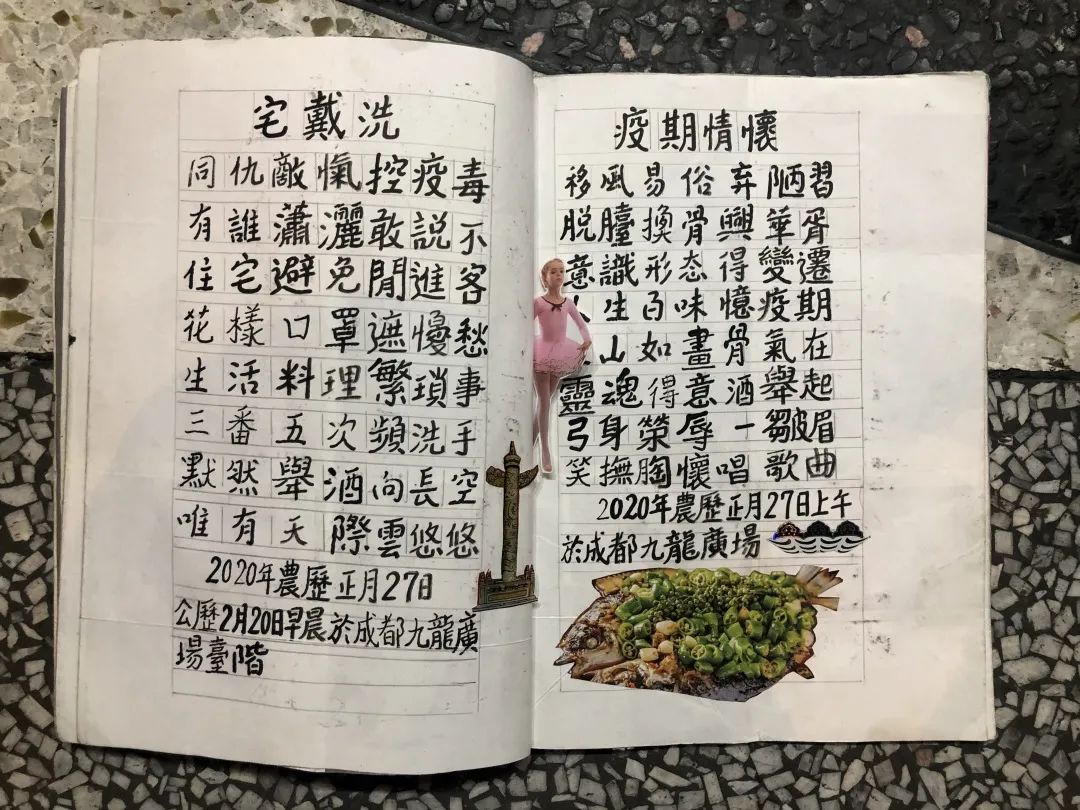 宅戴洗
同仇敵愾控疫毒
有誰瀟灑敢説不
住宅避免閒進客
花樣口罩遮慢愁
生活料理繁瑣事
三番五次頻洗手
默然舉酒向長空
唯有天際雲悠悠
2020年農歷正月27日
公歷2月20日早晨於成都九龍廣
場臺階
疫期情懷
移風易俗弃陋習
脱臆換骨興華胥
意識形态得變遷
生百味憶疫期
山如畫骨氣在
靈魂得意酒舉起
弓身榮辱一皺眉
笑撫胸懷唱歌曲
2020年農歷正月27日上午
於成都九龍廣場